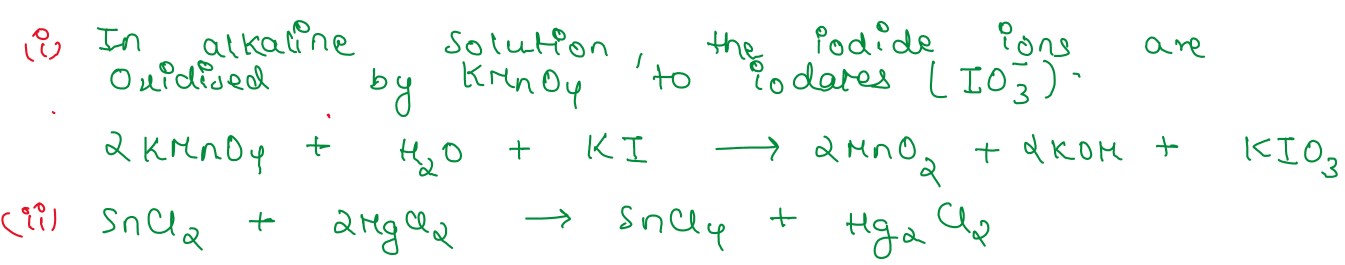 (i) In alkaline solution, the iodide ions are
Oxidised by KMnO₄ to iodates (IO₃⁻).
2KMnO₄ + H₂O + KI → 2MnO₂ + 2KOH + KIO₃
(ii) SnCl₂ + 2HgCl₂ → SnCl₄ + Hg₂Cl₂